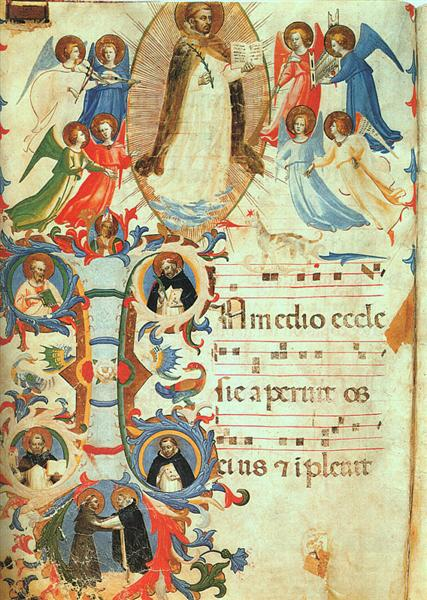 IN medio eccle
sie aperuit os
eius ⁊ i pleuit